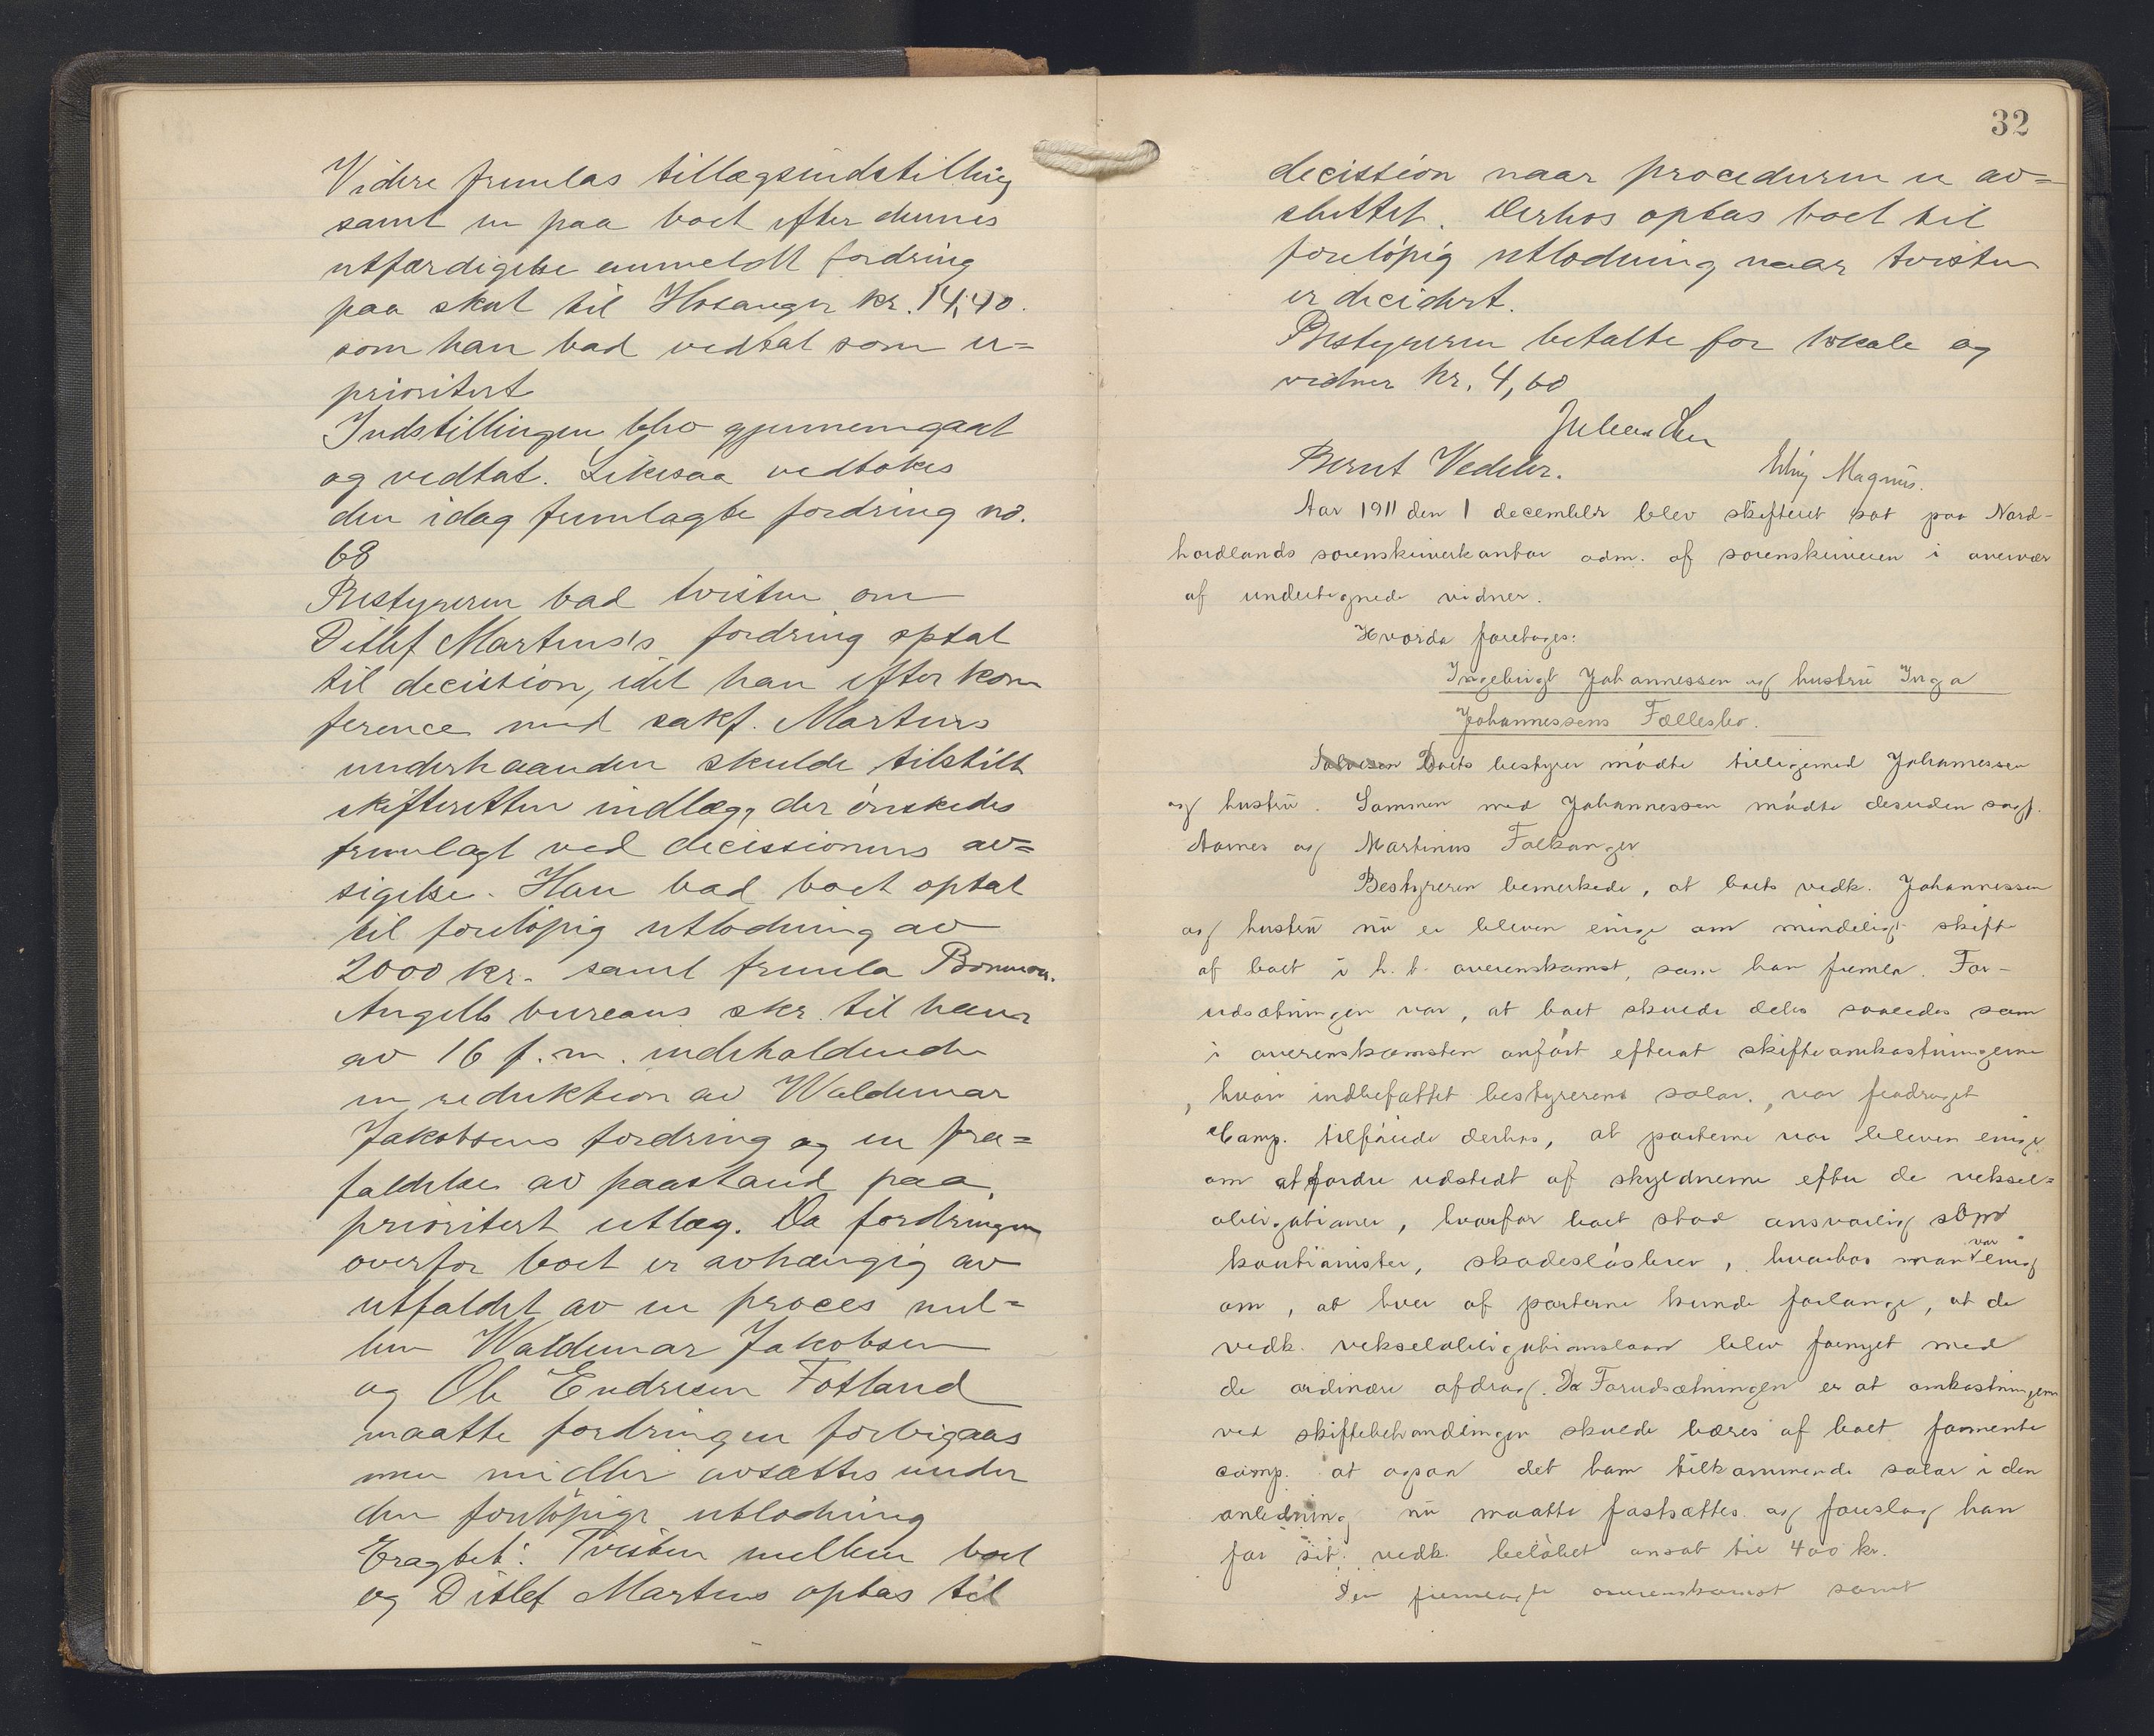 Videre fremlas tillægsindstilling
samt en paa boet efter dennes
utfærdigelse anmeldt fordring
paa skat til Hosanger kr. 14,40.
som han bad vedtat som u=
prioritert
Indstillingen blev gjennemgaat
og vedtat. Likesaa vedtokes
den idag fremlagte fordring no.
68
Bestyreren bad tvisten om
Ditlef Martens's fordring optat
til decision, idet han efter kon
ference med sakf. Martens
underhaanden skulde tilstilt
skifteretten indlæg, der ønskedes
fremlagt ved decissionens av=
sigelse. Han bad boet optat
til foreløpig utlodning av
2000 kr. samt fremla
Angells bureaus skr. til ham
av 16 f.m. indeholdende
en reduktion av Waldemar
Jakobsens fordring og en fra=
faldelse av paastand paa
prioritert utlæg. Da fordringen
overfor boet er avhængig av
utfaldet av en proces mel=
lem Waldemar Jakobsen
og Ole Endresen Fotland
maatte fordringen forbigaas
men midler avsættes under
den foreløpige utlodning
Eragtet: Tvisten mellem boet
og Ditlef Martens optas til
32
decission naar proceduren er av=
sluttet. Derhos optas boet til
foreløpig utlodning naar tvisten
er decidert.
Bestyreren betalte for lokale og
vidner kr. 4,60
Bernt Vedeler. Erling Magnus.
Aar 1911 den 1 december blev skifteret sat paa Nord-
hordlands sorenskriverkontor adm. af sorenskriveren i overvær
af undertegnede vidner.
Hvorda foretoges:
Ingebrigt Johannessen og hustru Inga
Johannessens Fællesbo.
Boets bestyrer mødte tilligemed Johannessen
og hustru. Sammen med Johannessen mødte desuden sagf.
Aarnes og Martinus Falkanger
Bestyreren bemerkede, at boets vedk. Johannessen
og hustru nu er bleven enige om mindeligt skifte
af boet i h. t. overenskomst, som han fremla. For-
udsætningen var, at boet skulde deles saaledes som
i overenskomsten anført efterat skifteomkostningerne
, hvori indbefattet bestyrerens salar, var fradraget
Comp. tilføiede derhos, at parterne var bleven enige
om at fordre udstedt af skyldnerne efter de veksel=
obligationer, hvorfor boet stod ansvarlig som
kautionister, skadesløsbrev, hvorhos man var enig
om, at hver af parterne kunde forlange, at de
vedk. vekselobligationslaan blev fornyet med
de ordinære afdrag. Da Forudsætningen er at omkostningerne
ved skiftebehandlingen skulde bæres af boet formente
comp. at ogsaa det ham tilkommende salar i den
anledning nu maatte fastsættes og foreslog han
for sit vedk. beløbet ansat til 400 kr.
Den fremlagte overenskomst samt